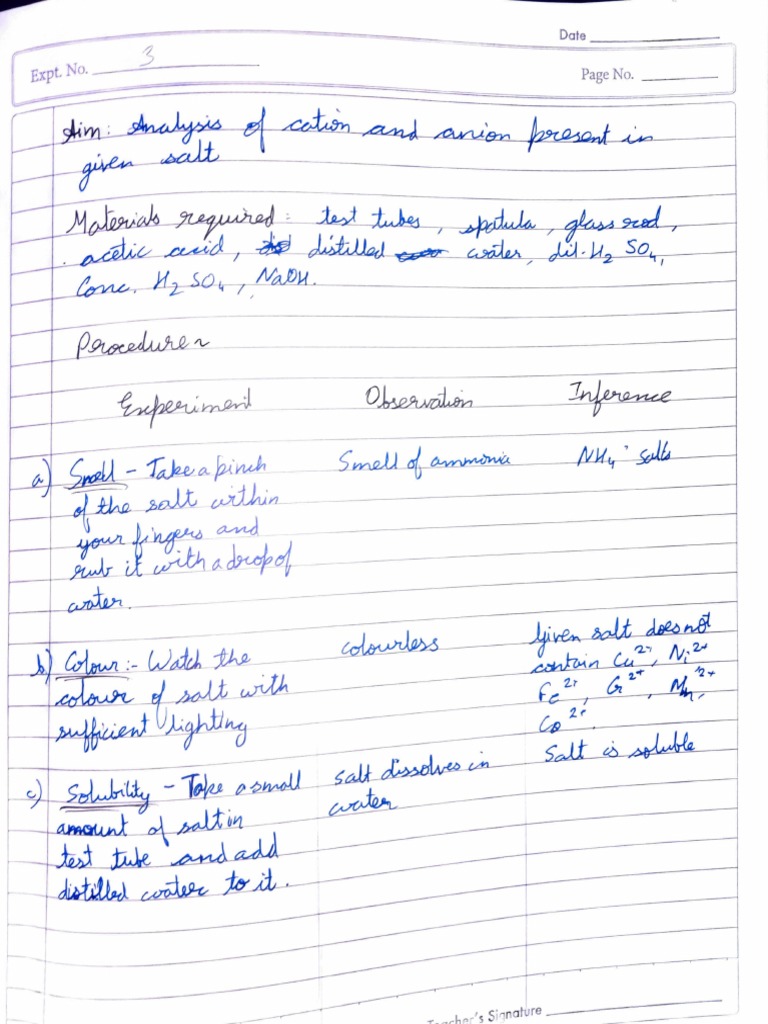 Date
Expt. No. 3
Page No.
Aim: Analysis of cation and anion present in
given salt
Materials required: test tubes, spatula, glass rod,
acetic acid, distilled water, dil. H2 SO4,
Conc. H2 SO4, NaOH.
Procedure~
Experiment Observation Inference
a) Smell - Take a pinch Smell of ammonia NH4+ salts
of the salt within
your fingers and
rub it with a drop of
water.
b) Colour:- Watch the colourless Given salt does not
colour of salt with contain Cu2+, Ni2+
sufficient lighting Fe2+, Cr2+, Mn2+,
Co2+.
c) Solubility - Take a small salt dissolves in Salt is soluble
amount of salt in water
test tube and add
distilled water to it.
Teacher's Signature